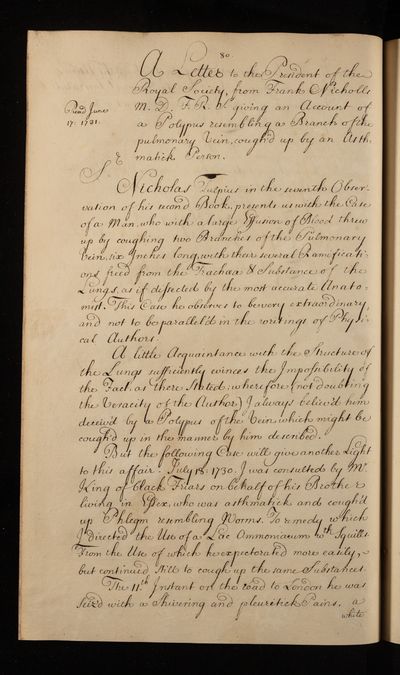 80
A Letter to the President of the
Royal Society, from Frank Nicholls
M. D. F. R. S. giving an Account of
Read June
17. 1731.
a Polypus resembling a Branch of the
pulmonary Vein, cough'd up by an Asth-
matick Person.
Nicholas Tulpius in the seventh Obser-
vation of his second Book, presents us with the Case
of a Man, who with a large Effusion of Blood threw
up by coughing two Branches of the Pulmonary
Vein, six Inches long, with their several Ramificati-
ons freed from the Trachaea & Substance of the
Lungs, as if dissected by the most accurate Anato-
mist. This Case he observes to be very extraordinary,
and not to be parallel'd in the writings of Physi-
cal Authors.
A little Acquaintance with the Structure of
the Lungs sufficiently evinces the Impossibility of
the Fact, as there stated; wherefore (not doubting
the Veracity of the Author) I always believ'd him
deceiv'd by a Polypus of the Vein, which might be
cough'd up in the manner by him described.
But the following Case will give another Light
to this affair. July 13: 1730. I was consulted by Mr.
King of black Friars on behalf of his Brother
living in Essex, who was asthmatick and cough'd
up Phlegm resembling Worms. To remedy which
I directed the Use of a Lac Ammoniacum wth. Squills
From the Use of which he expectorated more easily,
but continued still to cough up the same Substances.
The 11th Instant on the road to London he was
seiz'd with a Shivering and pleuretick Pains. a
white